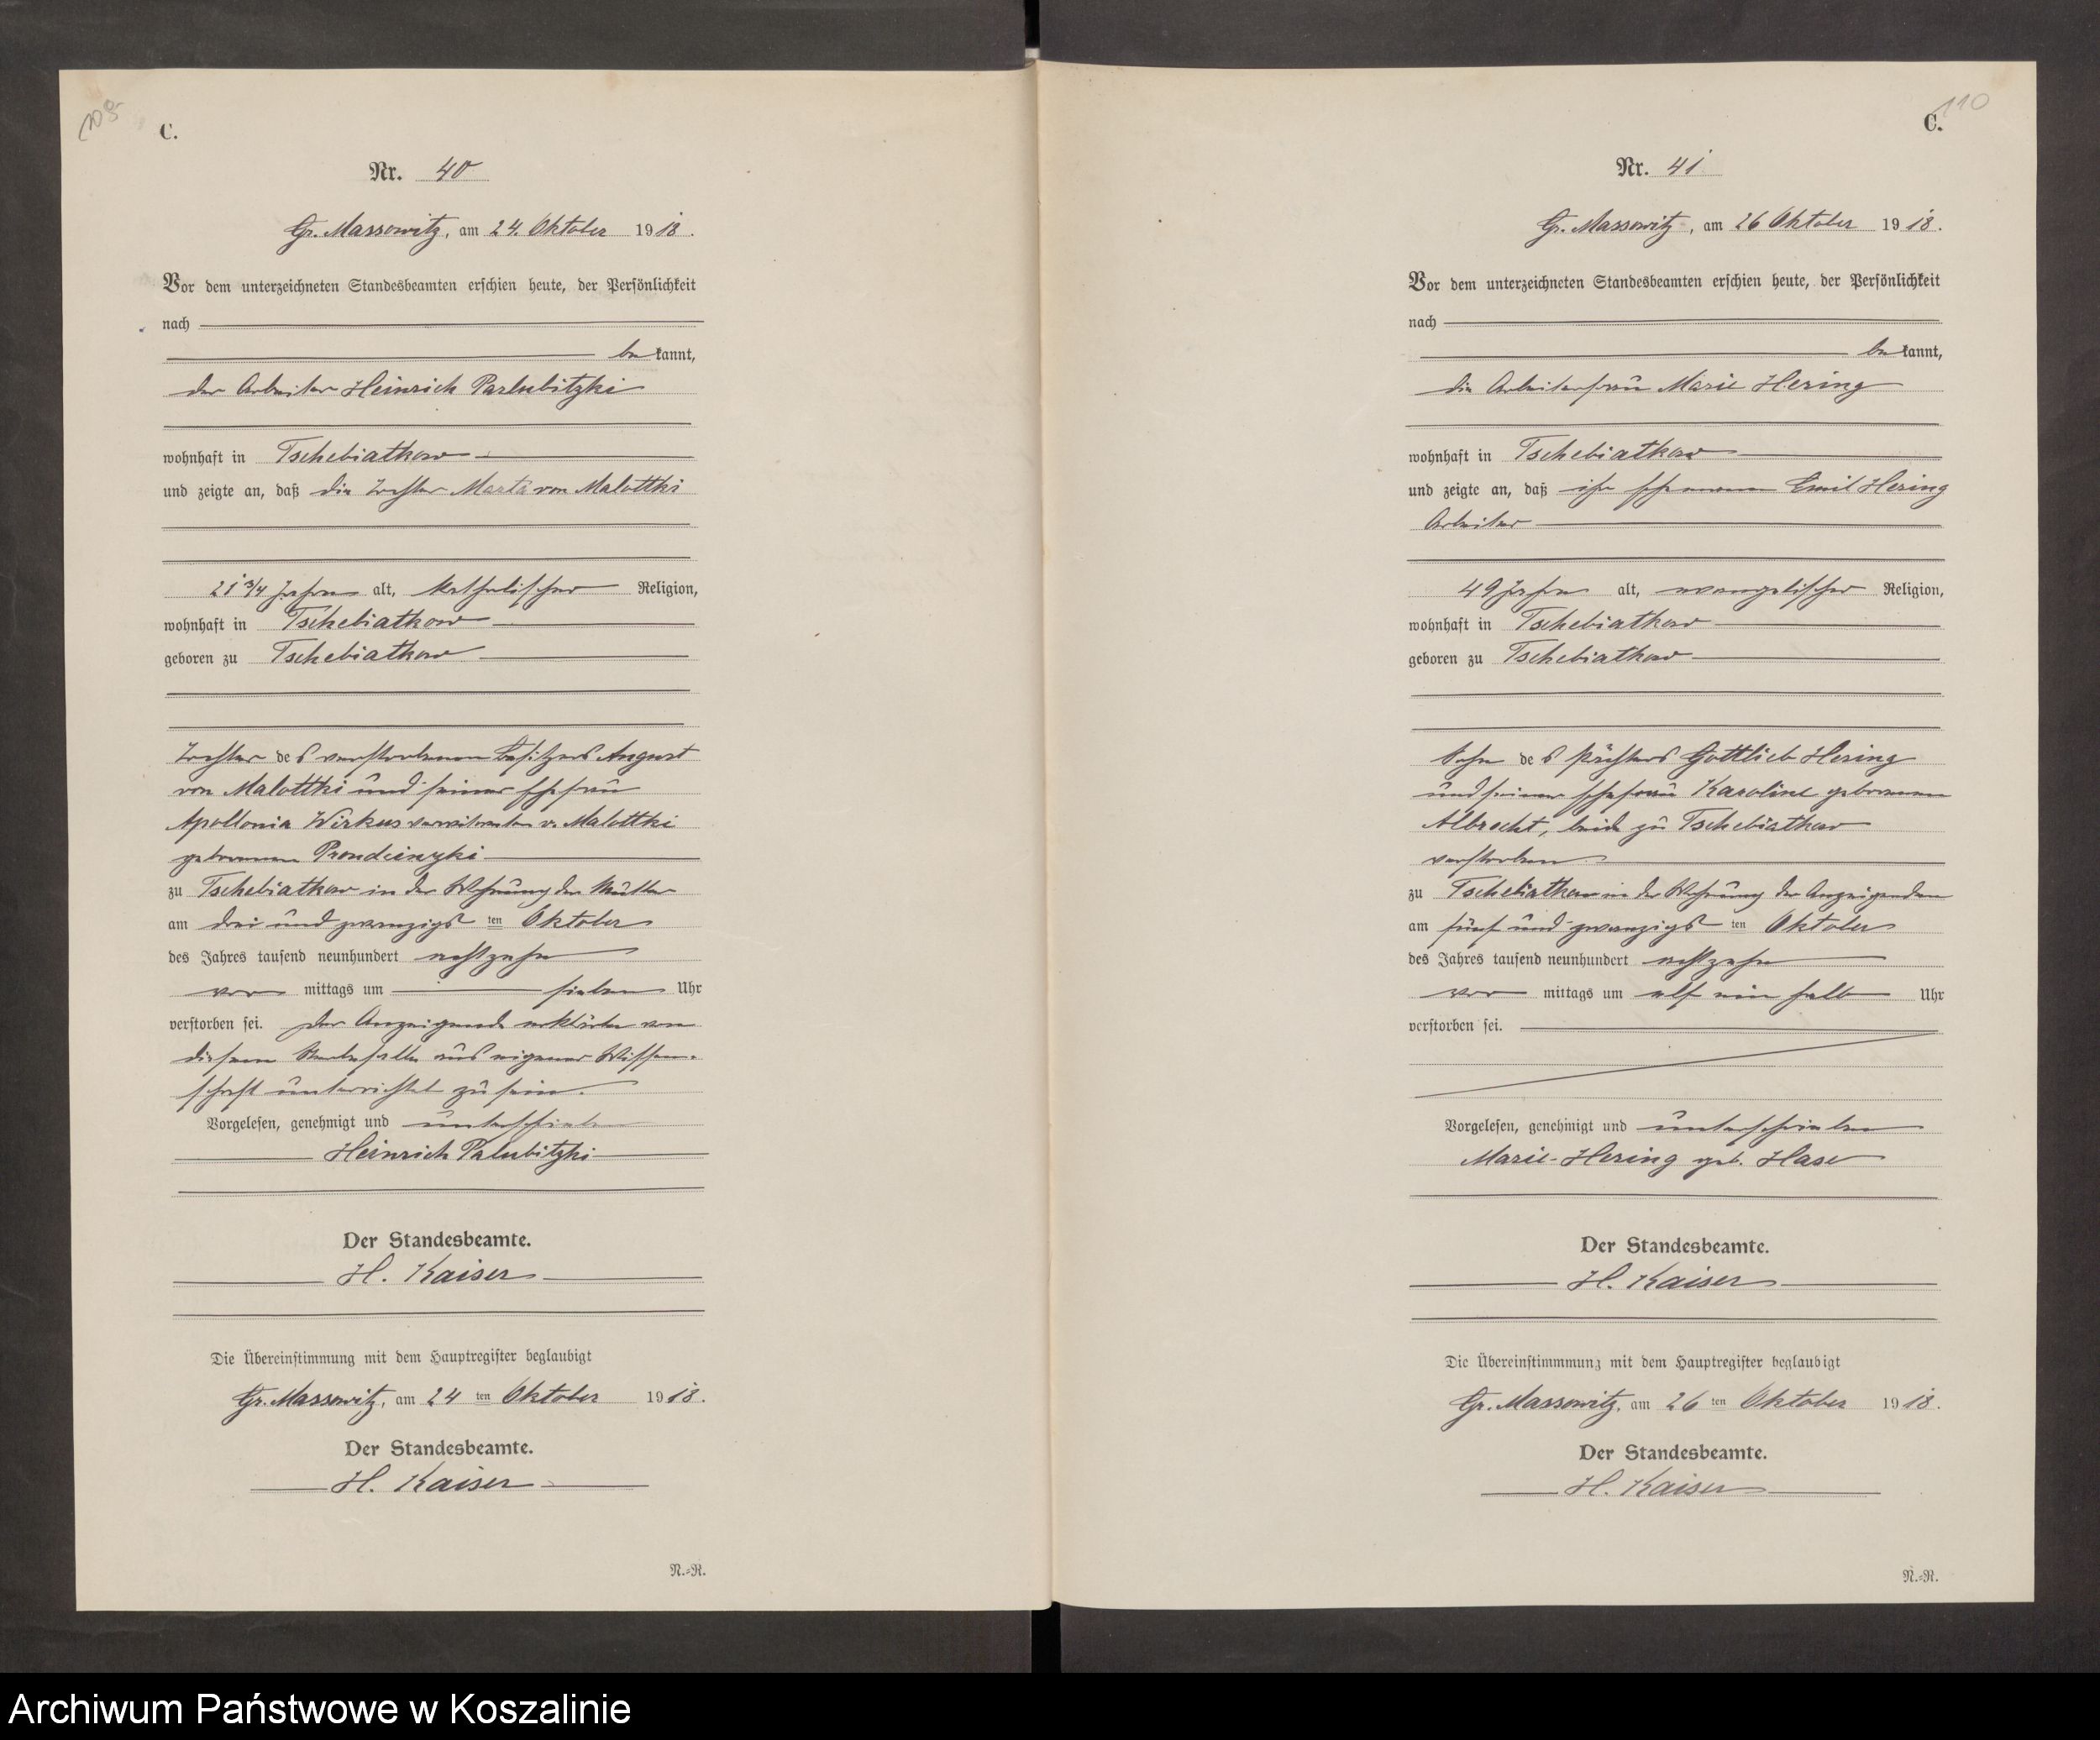 109
C.
Nr. 40
Gr. Massowitz, am 24. Oktober 1918.
Vor dem unterzeichneten Standesbeamten erschien heute, der Persönlichkeit
nach
be kannt,
der Arbeiter Heinrich Parlubitzki
wohnhaft in Tschebiatkow
und zeigte an, daß die Tochter Marta von Malottki
21 3/4 Jahre alt, katholischer Religion,
wohnhaft in Tschebiatkow
geboren zu Tschebiatkow
Tochter des verstorbenen Besitzers August
von Malottki und seiner Ehefrau
Apollonia Wirkus verwitweten v. Malottki
geborenen Prondcinzki
zu Tschebiatkow in der Wohnung der Mutter
am drei und zwanzigsten Oktober
des Jahres tausend neunhundert achtzehn
vor mittags um sieben Uhr
verstorben sei. Der Anzeigende erklärte von
diesem Sterbefalle aus eigener Wissen-
schaft unterrichtet zu sein.
Vorgelesen, genehmigt und unterschrieben
Heinrich Palubitzki
Der Standesbeamte.
H. Kaiser
Die Übereinstimmung mit dem Hauptregister beglaubigt
Gr. Massowitz, am 24 ten Oktober 1918.
Der Standesbeamte.
H. Kaiser
N.-R.
110
C.
Nr. 41
Gr. Massowitz, am 26 Oktober 1918.
Vor dem unterzeichneten Standesbeamten erschien heute, der Persönlichkeit
nach
be kannt,
die Arbeiterfrau Marie Hering
wohnhaft in Tschebiatkow
und zeigte an, daß ihr Ehemann Emil Hering
Arbeiter
49 Jahre alt, evangelischer Religion,
wohnhaft in Tschebiatkow
geboren zu Tschebiatkow
Sohn des Pächters Gottlieb Hering
und seiner Ehefrau Karoline geborenen
Albrecht, beide zu Tschebiatkow
verstorben
zu Tschebiatkow in der Wohnung der Anzeigenden
am fünf und zwanzigsten Oktober
des Jahres tausend neunhundert achtzehn
vor mittags um elf ein halb Uhr
verstorben sei.
Vorgelesen, genehmigt und unterschrieben
Marie Hering geb. Hase
Der Standesbeamte.
H. Kaiser
Die Übereinstimmmung mit dem Hauptregister beglaubigt
Gr. Massowitz, am 26 ten Oktober 1918.
Der Standesbeamte.
H. Kaiser
N.-R.
Archiwum Państwowe w Koszalinie